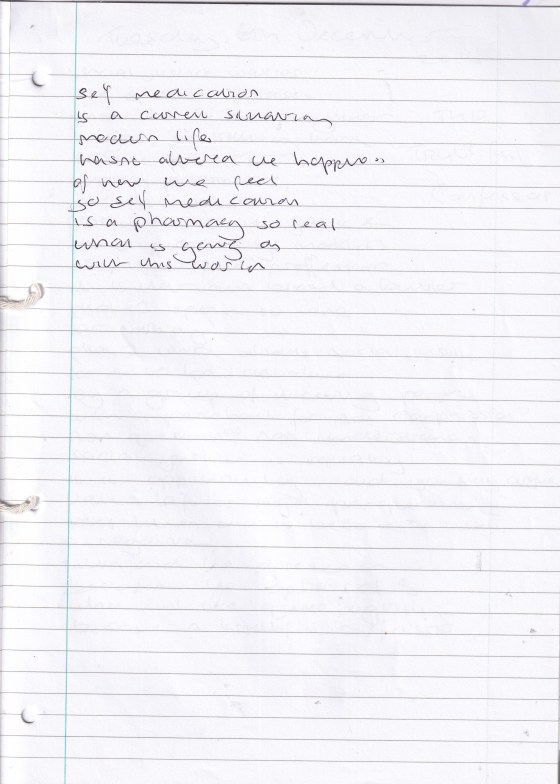 self medication
is a current situation
modern life
hasnt altered the happiness
of how we feel
so self medication
is a pharmacy so real
what is going on
with this world